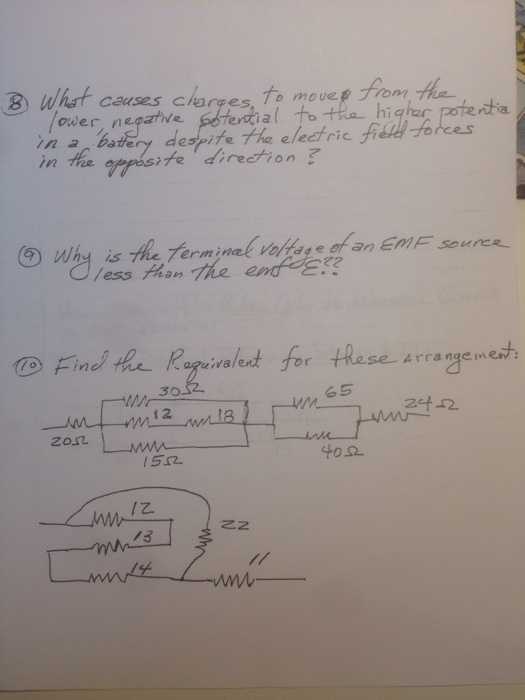 8 What causes charges, to move from the
lower, negative potential to the higher potentia
in a battery despite the electric field forces
in the opposite direction?
9 Why is the terminal voltage of an EMF source
less than the emf ε??
10 Find the Requivalent for these arrangement:
30Ω
65
12
18
24Ω
20Ω
15Ω
40Ω
12
22
13
14
11